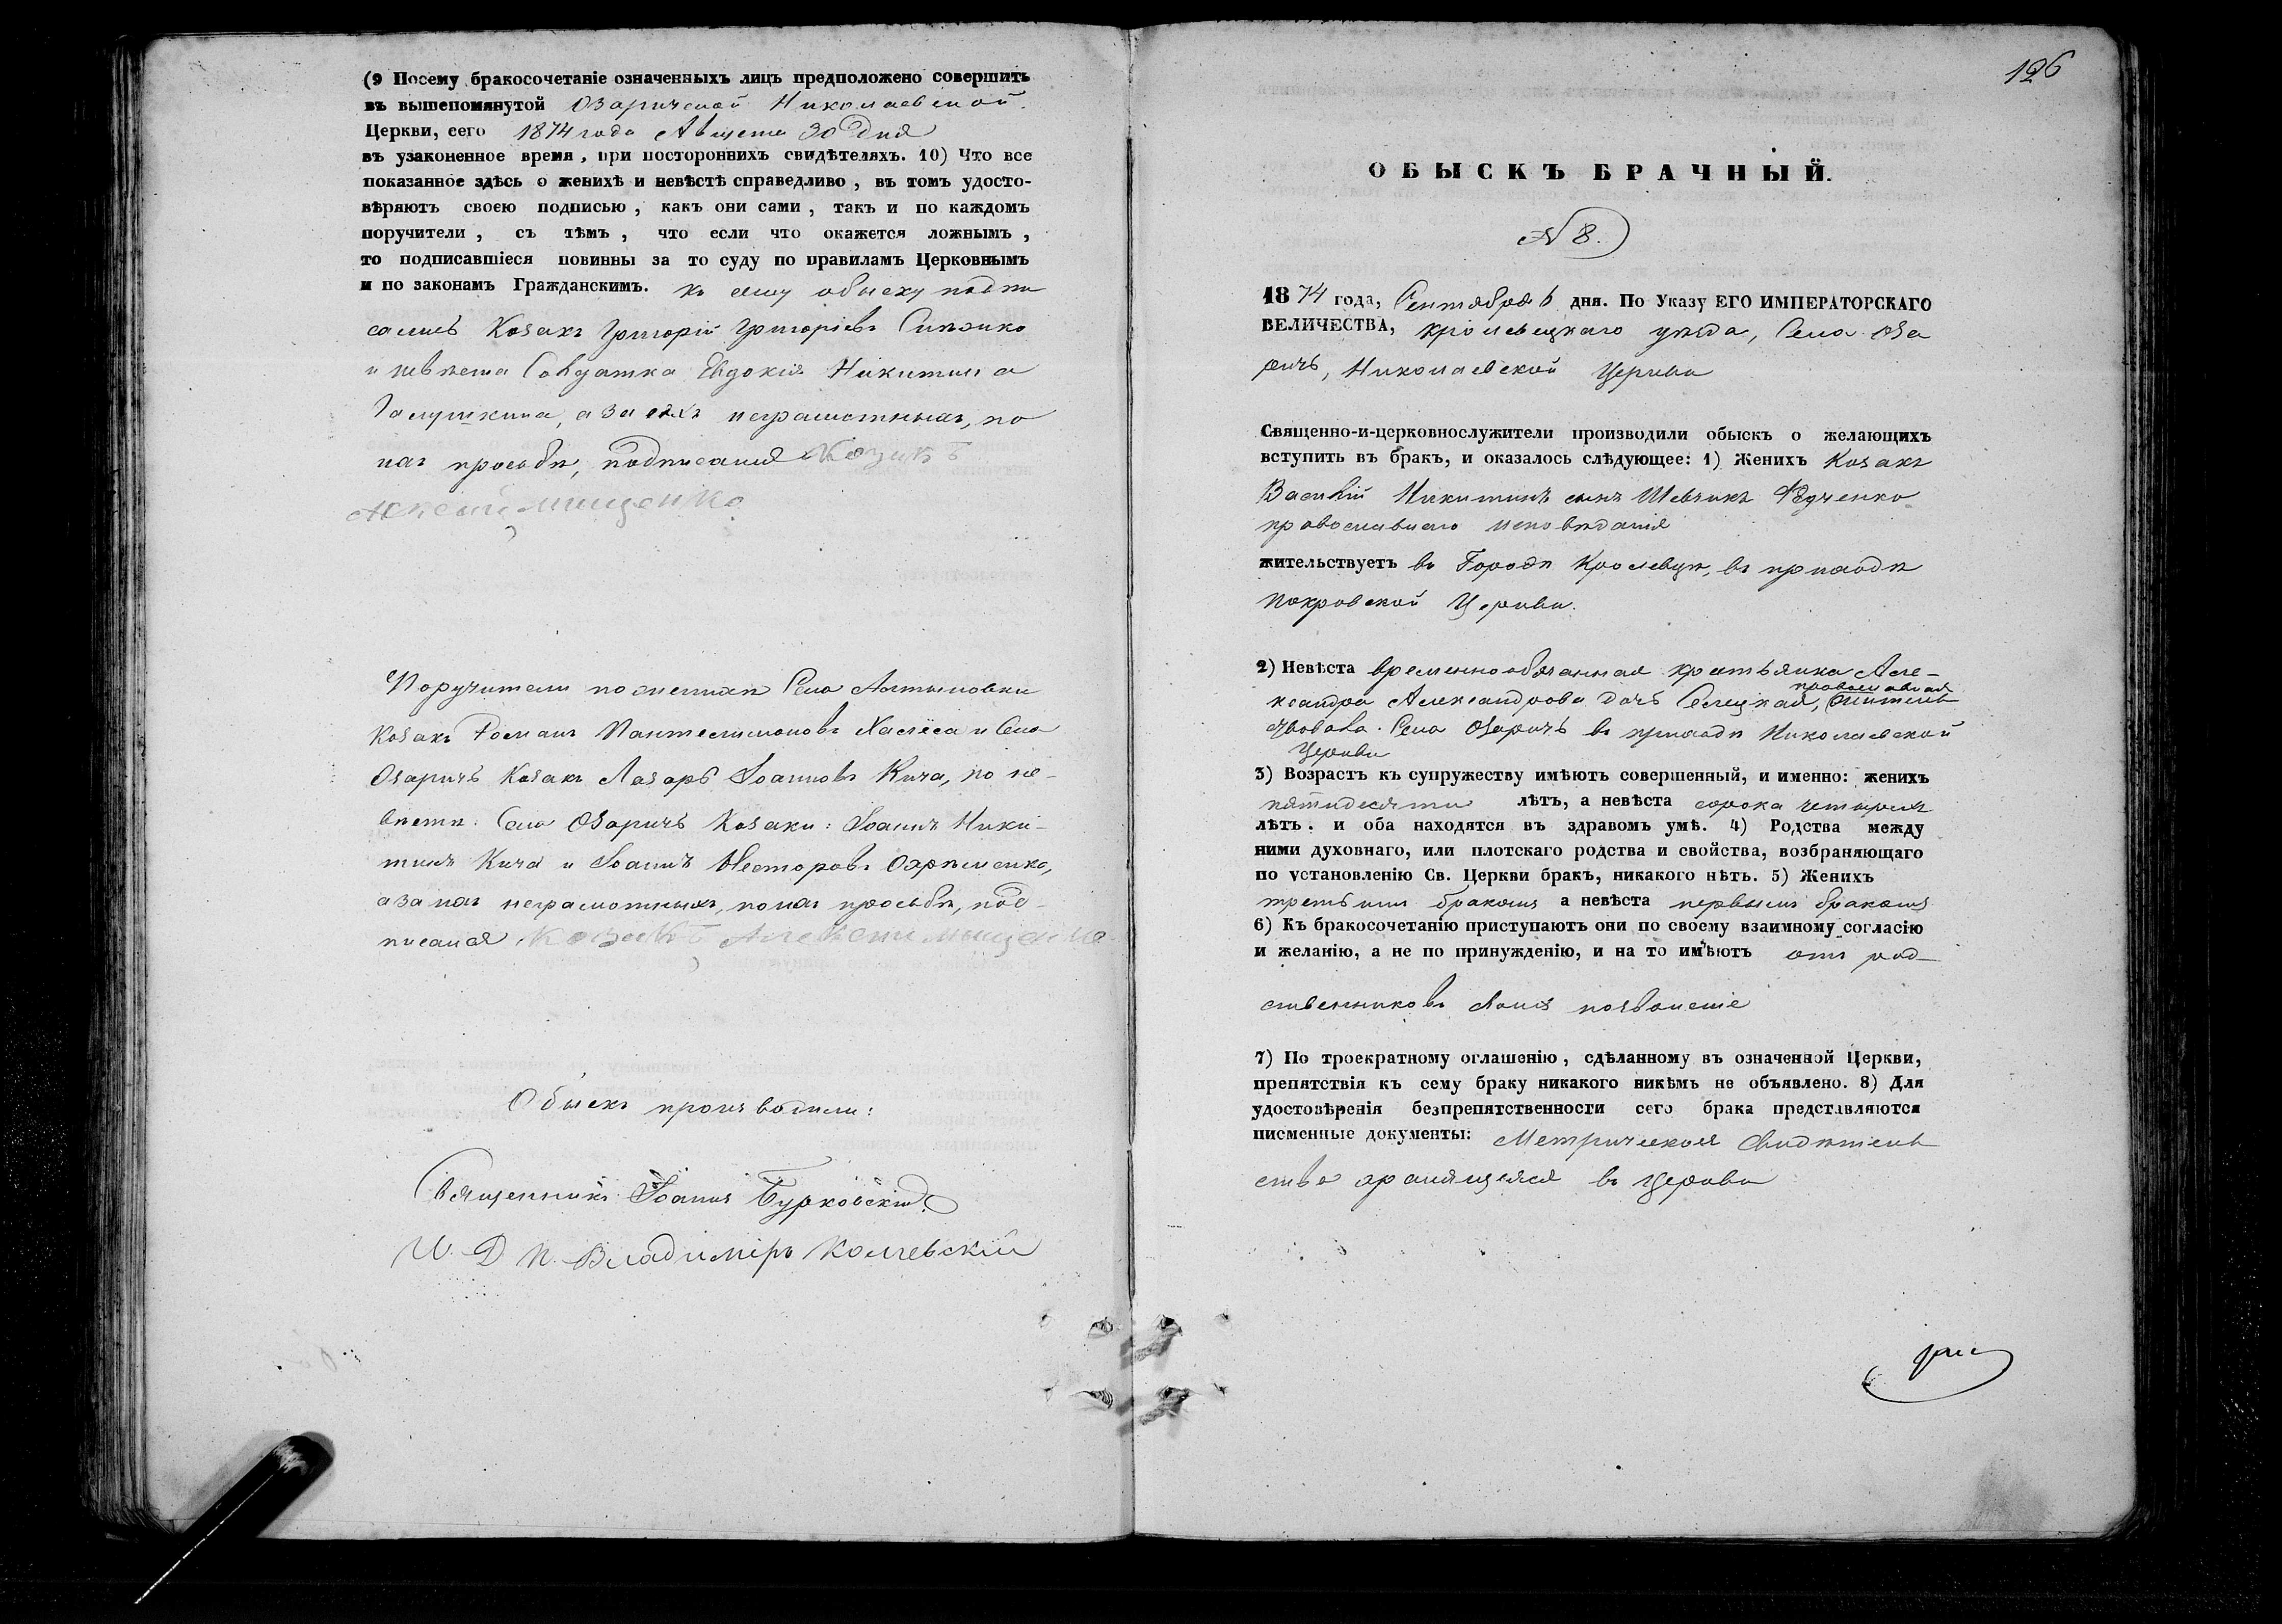 (9 Посему бракосочетаніе означенныхъ лицъ предположено совершить
въ вышепомянутой Озаричской Николаевской
Церкви, сего 1874 года Августа 30 дня
въ узаконенное время, при постороннихъ свидѣтеляхъ. 10) Что все
показанное здѣсь о женихѣ и невѣстѣ справедливо, въ томъ удосто-
вѣряютъ своею подписью, какъ они сами, такъ и по каждомъ
поручители, съ тѣмъ, что если что окажется ложнымъ,
то подписавшіеся повинны за то суду по правиламъ Церковнымъ
и по законамъ Гражданскимъ. Къ сему обыску подпи
сались Козакъ Григорій Григоріевъ
и невѣста Солдатка Евдокія Никитина
а за сихъ неграмотныхъ, по
ихъ просьбѣ, подписался Козакъ
Алексей Мищенко
Поручители по женихѣ Села Алтыновки
Козакъ Романъ Пантелимоновъ и Села
Озаричъ Козакъ Лазарь Іоанновъ Кича, по не-
вѣстѣ: Села Озаричъ Козаки: Іоаннъ Ники-
тинъ Кича и Іоаннъ Несторовъ Охрѣменко,
а за ихъ неграмотныхъ, по ихъ просьбѣ, под-
писался Козакъ Алексей Мищенко
Обыскъ производили:
Священникъ Іоаннъ Бурковскій
И. Д. П. Владиміръ
126
ОБЫСКЪ БРАЧНЫЙ.
N 8.
1874 года, Сентября 6 дня. По Указу ЕГО ИМПЕРАТОРСКАГО
ВЕЛИЧЕСТВА, Кролевецкаго уѣзда, Села Оза
ричъ, Николаевской Церкви
Священно-и-церковнослужители производили обыскъ о желающихъ
вступить въ бракъ, и оказалось слѣдующее: 1) Женихъ Козакъ
Василій Никитинъ сынъ Шевчикъ Федченко
православнаго исповѣданія
жительствуетъ въ Городѣ Кролевцѣ, въ приходѣ
Покровской Церкви.
2) Невѣста временнообязанная крестьянка Але-
ксандра Александрова дочь Селецкая, православная жительст
Села Озаричъ въ приходѣ Николаевской
Церкви
3) Возрастъ къ супружеству имѣютъ совершенный, и именно: женихъ
пятидесяти лѣтъ, а невѣста сорока четырехъ
лѣтъ. и оба находятся въ здравомъ умѣ. 4) Родства между
ними духовнаго, или плотскаго родства и свойства, возбраняющаго
по установленію Св. Церкви бракъ, никакого нѣтъ. 5) Женихъ
третьимъ бракомъ а невѣста первымъ бракомъ
6) Къ бракосочетанію приступаютъ они по своему взаимному согласію
и желанію, а не по принужденію, и на то имѣютъ отъ род-
ственниковъ своихъ позволеніе
7) По троекратному оглашенію, сдѣланному въ означенной Церкви,
препятствія къ сему браку никакого никѣмъ не объявлено. 8) Для
удостовѣренія безпрепятственности сего брака представляются
писменные документы: Метрическая свидѣтель
ство хранящаяся въ Церкви